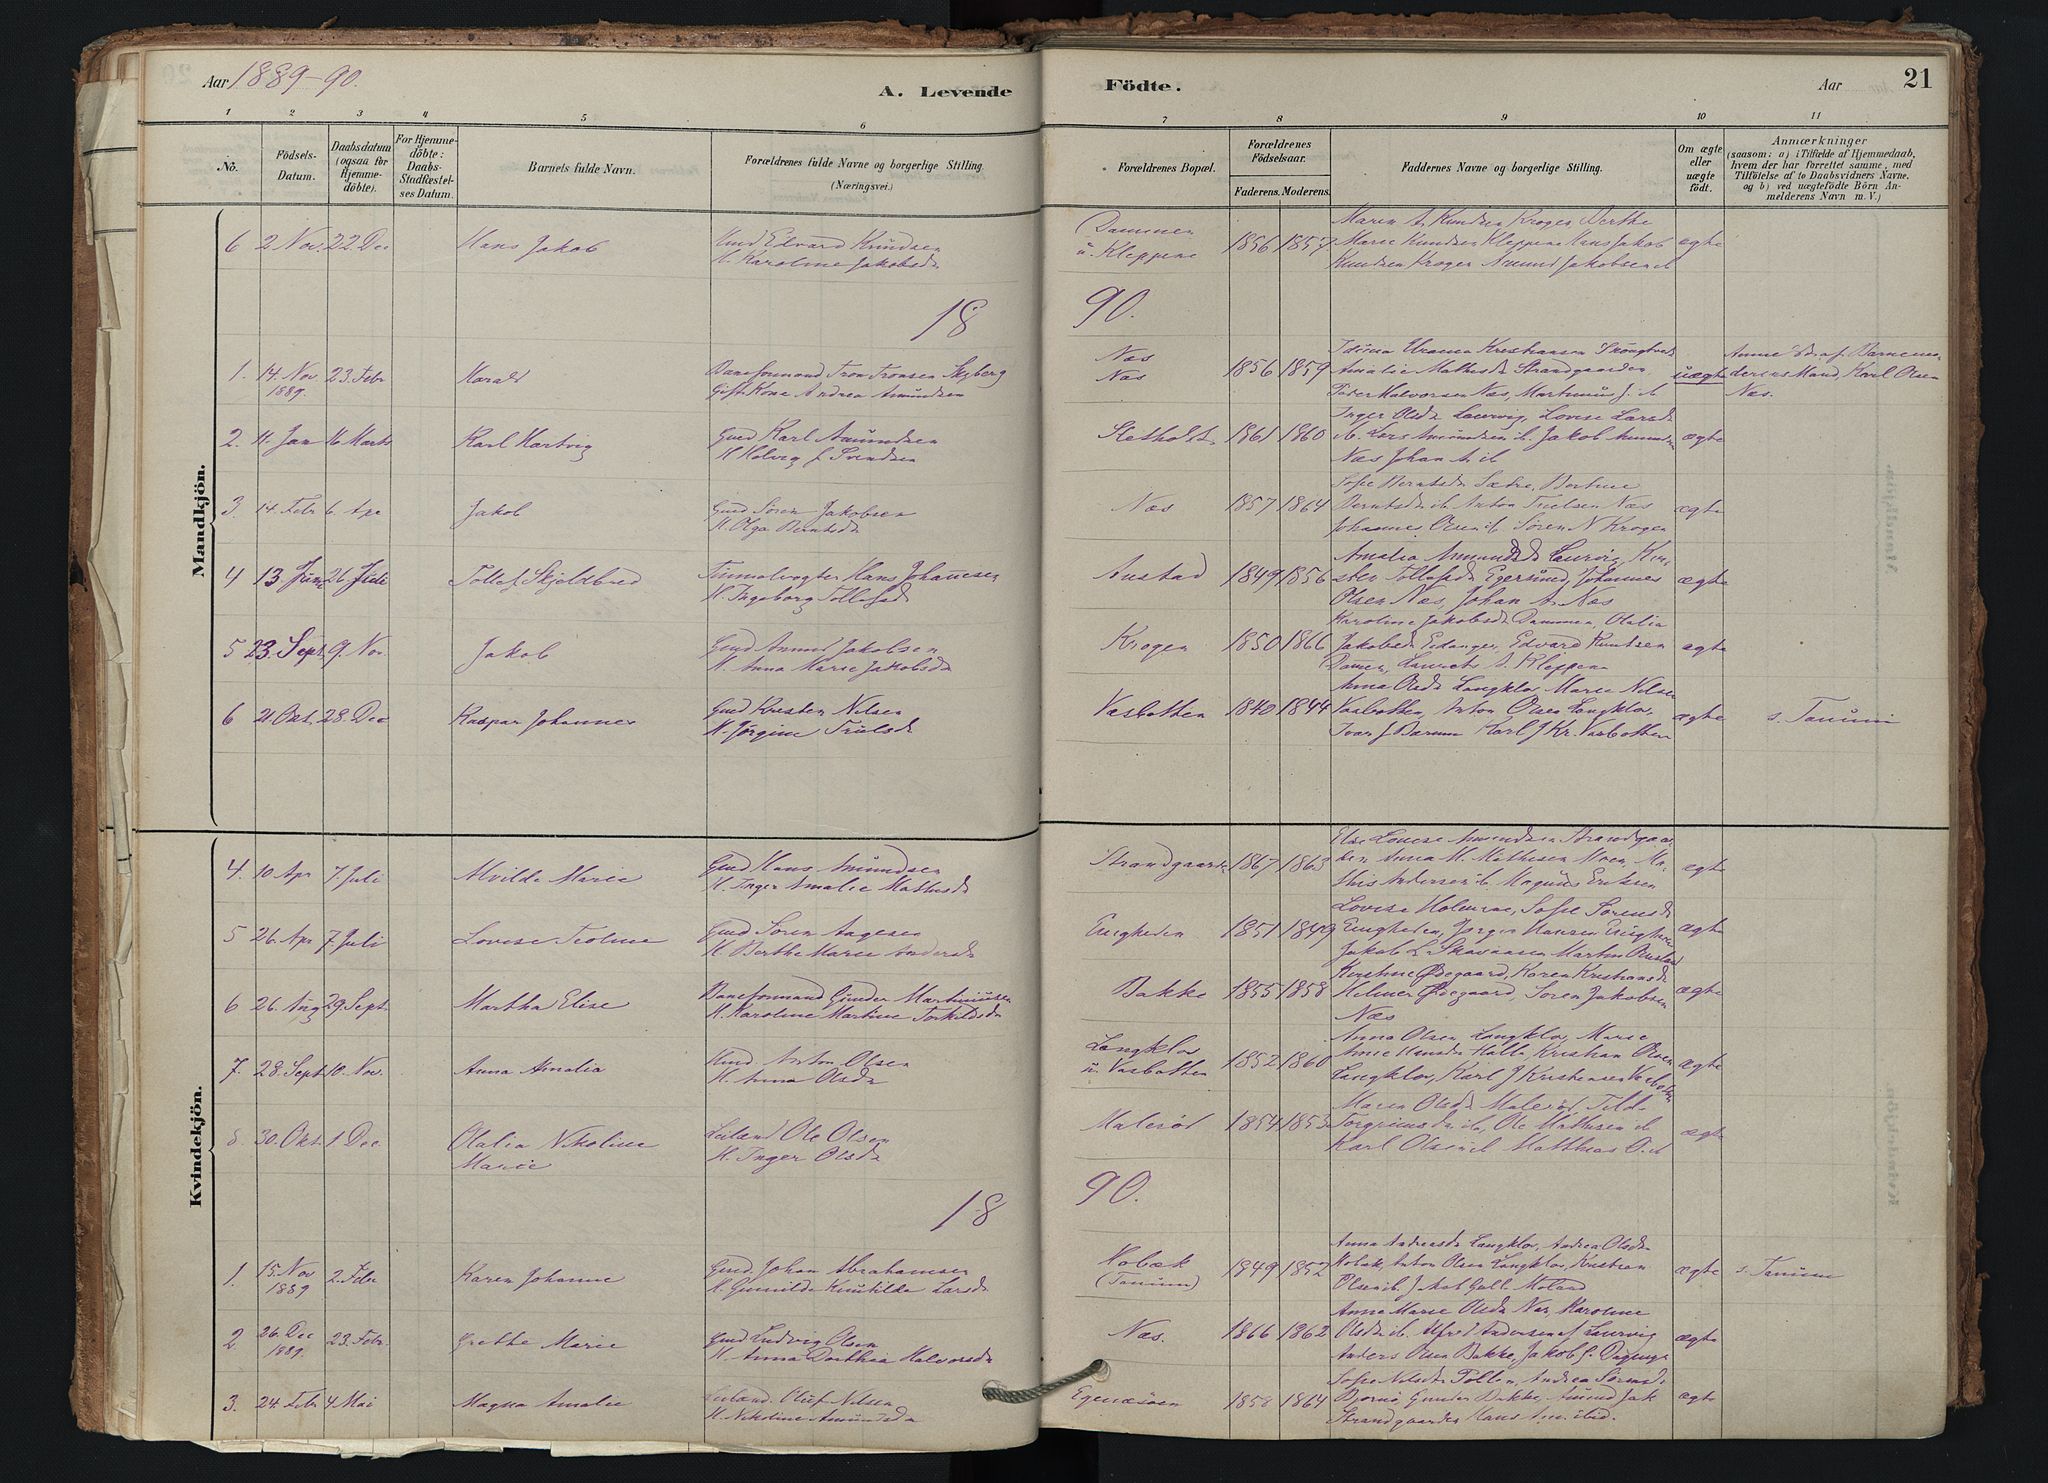 Aar 1889-90.
A. Levende
Födte.
Aar
21
1
2
3
4
5
6
7
8
9
10
11
No.
Födsels-
Datum.
Daabsdatum
(ogsaa for
Hjemme-
döbte).
For Hjemme-
döbte:
Daabs-
Stadfæstel-
ses Datum.
Barnets fulde Navn.
Forældrenes fulde Navne og borgerlige Stilling.
(Næringsvei.)
Forældrenes Bopæl.
Forældrenes
Födselsaar.
Faderens.
Moderens.
Faddernes Navne og borgerlige Stilling.
Om ægte
eller
uægte
födt.
Anmærkninger
(saasom: a) i Tilfælde af Hjemmedaab,
hvem der har forrettet samme, med
Tilföielse af to Daabsvidners Navne,
og b) ved uægtefödte Börn An-
melderens Navn m. V.)
Mandkjön.
6 2 Nov. 22 Dec Hans Jakob
Edvard Knudsen
K. Karoline Jakobsd
Dammen
u. Kleppene
1856 1857
Maren A. Knudsen Krogen Berthe
Marie Knudsen Kleppene Hans Jakob
Knudsen Kroger Amund Jakobsen
ægte
18
90.
1. 14. Nov 1889. 23. Febr Harald
Banefonnand Tron Tronsen Skjberg
Gift Kone Andrea Amundsen
Næs
Næs
1856 1859
Kristiansen
Amalie Mathisd Strandgaarden
Peder Halvorsen Næs, Martinius J. ib
uægte
Anme
Mand, Karl Olsen
Næs.
2. 11. Jan 16 Marts Karl Hartvig
Gmd Karl Amundsen
K Helvig J Svendsen
Sletholt
1861 1860
Inger Olsd Laurvig, Lovise Larsd
ib. Lars Amundsen ib. Jakob
Næs Johan A. ib
ægte
3. 14. Febr 6 Apr Jakob
Gmd Søren Jakobsen
K. Olga Berntsd
Næs
1857 1864
Sofie Berntsd Sætre, Bertine
Berntsd ib. Anton Trulsen Næs
Johannes Olsen ib. Søren N Krogen
ægte
4 13. Juni 26. Juli Tollef Skjoldbred
Hans Johannesen
K. Ingeborg Tollefsd
Austad
1849 1856
Amalia Amundsd Laurvig, Kir-
sten Tollefsd Egersund, Johannes
Olsen Næs, Johan A. Næs
ægte
5 23. Sept 9. Nov Jakob
Gmd Amund Jakobsen
K. Anna Marie Jakobsd
Krogen
1850 1866
Karoline Jakobsd Dammen, Olalia
Jakobsd Eidanger, Edvard Knutsen
Damen, Laurits A. Kleppene
ægte
6 21 Okt. 28. Dec Kaspar Johannes
Gmd Kristen Nilsen
K. Jørgine Trulsd
Vasbotten
1840 1844
Anna Olsd Langklov Marie Nilsen
Vasbotten, Anton Olsen Langklov,
Ivar J Bærum Karl J Kr. Vasbotten
ægte
s. Tanum
Kvindekjön.
4. 10 Apr 7 Juli Alvilde Marie
Gmd Hans Amundsen
K. Inger Amalie Mathisd
Strandgaarden
1867 1863
Else Lovise Amundsen Strandgaar-
den Anna M. Mathisen Moen, Ma-
this Andersen ib. Magnus Eriksen
ægte
5 26. Apr 7. Juli Lovise Teoline
Gmd Søren Aagesen
K. Berthe Marie Andersd
Enigheden
1851 1849
Lovise Holmene, Sofie Sørensd
Enigheden, Jørgen Hansen Enigheden
Jakob L. Martin
ægte
6 26. Aug 29. Sept. Martha Elise
Banefonnand Gunder Martiniusen
K. Karoline Martine Torkildsd
Bakke
1855 1858
Kirstine Ødegaard, Karen Kristiansd
Helmer Ødegaard, Søren Jakobsen
Næs
ægte
7. 28. Sept 10. Nov. Anna Amalia
Anton Olsen
K. Anna Olsd
Langklov
u. Vasbotten
1852 1860
Anna Olsen Langklov, Marie
Anne Hansd Halle, Kristian Olsen
Langklov, Karl J Kristensen Vasbotten
ægte
8. 30. Okt. 1 Dec Olalia Nikoline
Marie
Leilænd Ole Olsen
K. Inger Olsd
Malerød
1854 1853
Maren Olsd Malerød, Tild
Torgrimsd ib, Ole Mathisen ib
Karl Olsen ib Matthias O. ib
ægte
18
90.
1. 15. Nov 1889 2. Febr Karen Johanne
Gmd. Johan Abrahamsen
K. Gunilde Knutilda Larsd
Holbæk
(Tanum)
1849 1852
Anna Andreasd Langklov, Andrea Olsd
Holbæk, Anton Olsen Langklov, Kristian
Olsen ib. Jakob
ægte
s. Tanum
2. 26. Dec 1889. 23. Febr. Grethe Marie
Gmd Ludvig Olsen
K. Anna Dorthea Halvorsd
Næs.
1866 1862
Anna Marie Olsd Næs, Karoline
Olsd ib. Alfred Andersen af Laurvig
Anders Olsen Bakke, Jakob
ægte
3. 24. Febr 4 Mai Magna Amalie
Leilænd. Oluf Nilsen
K. Nikoline Amundsd
Egenæsøen
1858 1864
Sofie Nilsd Andrea
Bjørnø Gunder Bakke, Amund Jak
Strandgaarden Hans Am. ibid.
ægte